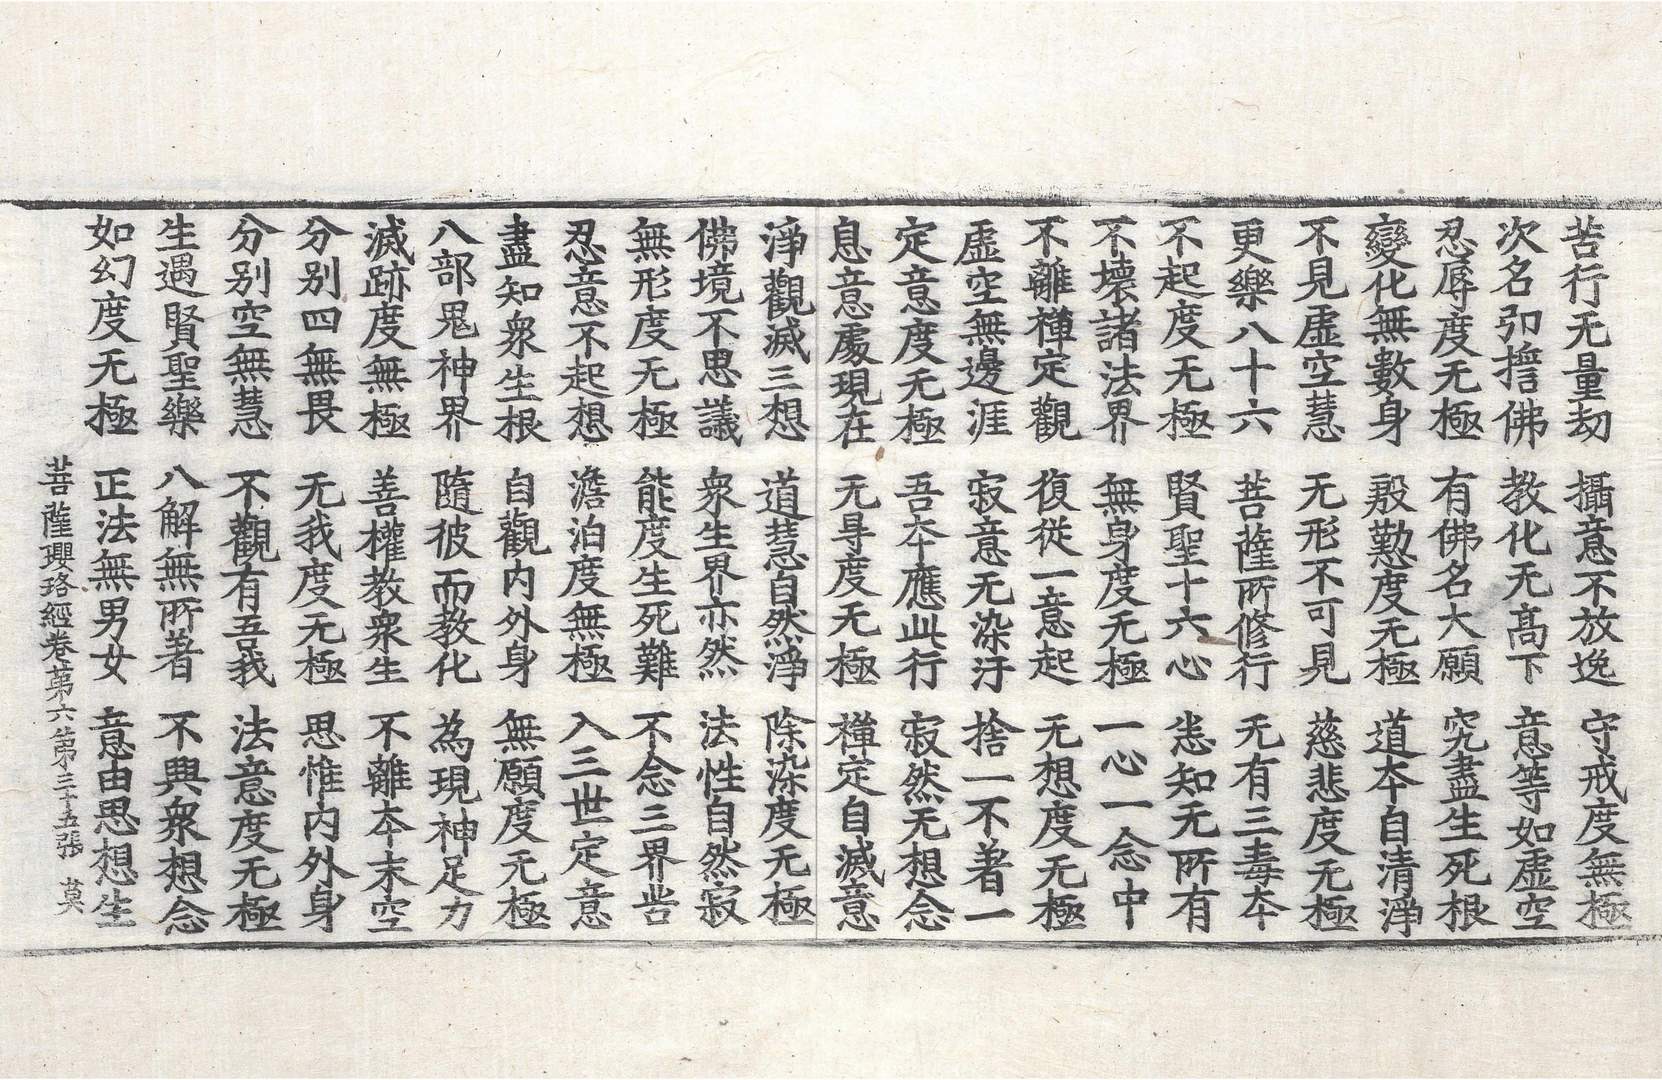 苦行无量劫　攝意不放逸　守戒度無極
次名卬擔佛　教化无髙下　意等如虛空
忍辱度无極　有佛名大願　究盡生死根
變化無數身　殷懃度无極　道夲自清淨
不見虛空慧　无形不可見　慈悲度无極
更樂八十六　菩薩所修行　无有三毒夲
不起度无極　賢聖十六心　悉知无所有
不壞諸法界　無身度无極　一心一念中
不離禪定觀　復從一意起　无想度无極
虛空無邊涯　寂意无染汙　捨一不著一
定意度无極　吾夲應此行　寂然无想念
息意處現在　无㝵度无極　禪定自滅意
淨觀滅三想　道慧自然淨　除染度无極
佛境不思議　衆生界亦然　法性自然寂
無形度无極　能度生死難　不念三界苦
忍意不起想　澹泊度無極　入三世定意
盡知衆生根　自觀内外身　無願度无極
八部鬼神界　隨彼而教化　為現神足力
滅跡度無極　善權教衆生　不離夲末空
分別四無畏　无我度无極　思惟内外身
分別空無慧　不觀有吾我　法意度无極
生遇賢聖樂　八解無所著　不興衆想念
如幻度无極　正法無男女　意由思想生
菩薩瓔珞經卷第六第三十五張　莫